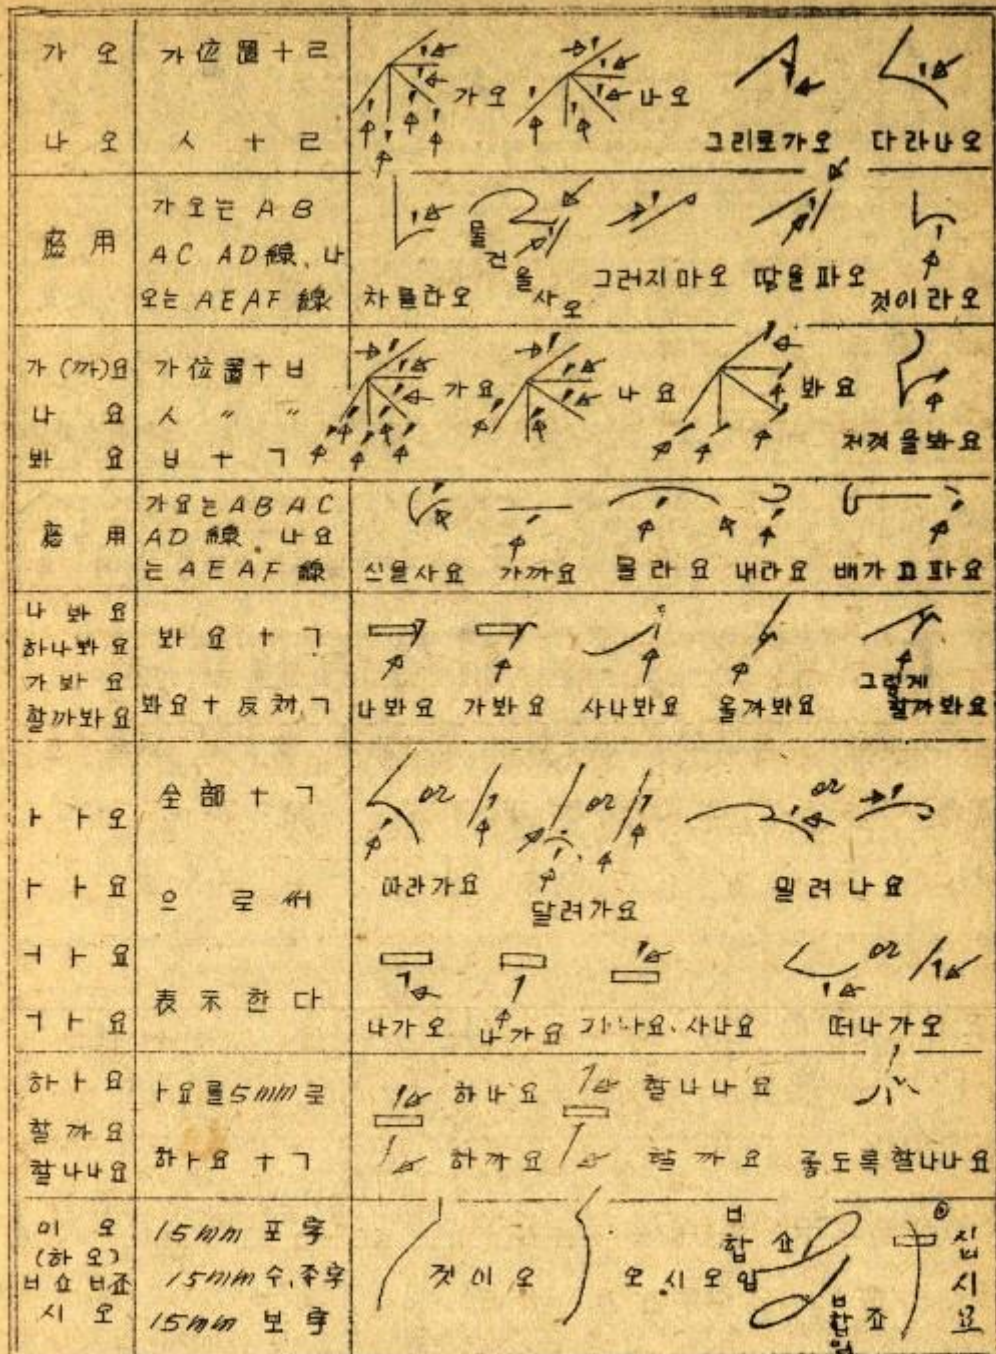 가 오
나 오
가位置+ㄹ
ㅅ + ㄹ
가오
나오
그리로가오
다라나오
應用
가오는 AB
AC AD線、나
오는 AEAF線
차를라오
물건을사오
그러지마오
땅을파오
것이라오
가(까)요
나 요
봐 요
가位置+ㅂ
ㅅ 〃 〃
ㅂ + ㄱ
가요
나요
봐요
저것을봐요
應用
가요는ABAC
AD線. 나요
는AEAF線
신을사요
가까요
몰라요
내라요
배가고파요
나봐요
하나봐요
가봐요
할까봐요
봐요+ㄱ
봐요+反対ㄱ
나봐요
가봐요
사나봐요
올까봐요
그렇게
할까봐요
ㅏㅏ오
ㅏㅏ요
ㅓㅏ요
ㅓㅏ요
全部+ㄱ
으로써
表示한다
or
따라가요
or
달려가요
or
밀려나요
나가오
나가요
가나요、사나요
or
떠나가오
하ㅏ요
할까요
할나나요
ㅏ요를5mm로
하ㅏ요+ㄱ
하나요
할나나요
하까요
할까요
좋도록할나나요
이오
(하오)
ㅂ쇼 ㅂ죠
시오
15mm 포字
15mm 수,주字
15mm 보字
것이오
오시오
ㅂ
합쇼
입
ㅂ
합죠
십시요